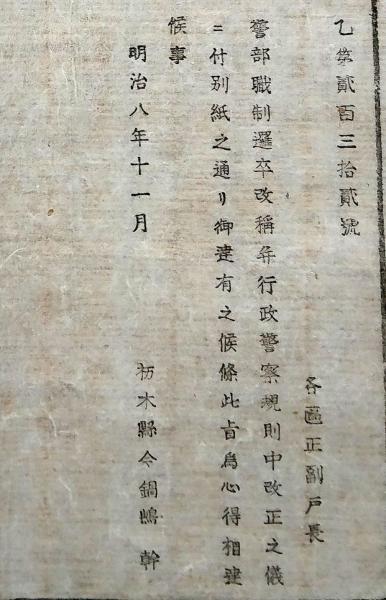 乙第貳百三拾貳號
各區正副戸長
警部職制邏卒改稱并行政警察規則中改正之儀
ニ付別紙之通リ御達有之候條此旨爲心得相達
候事
明治八年十一月
栃木縣令鍋嶋 幹